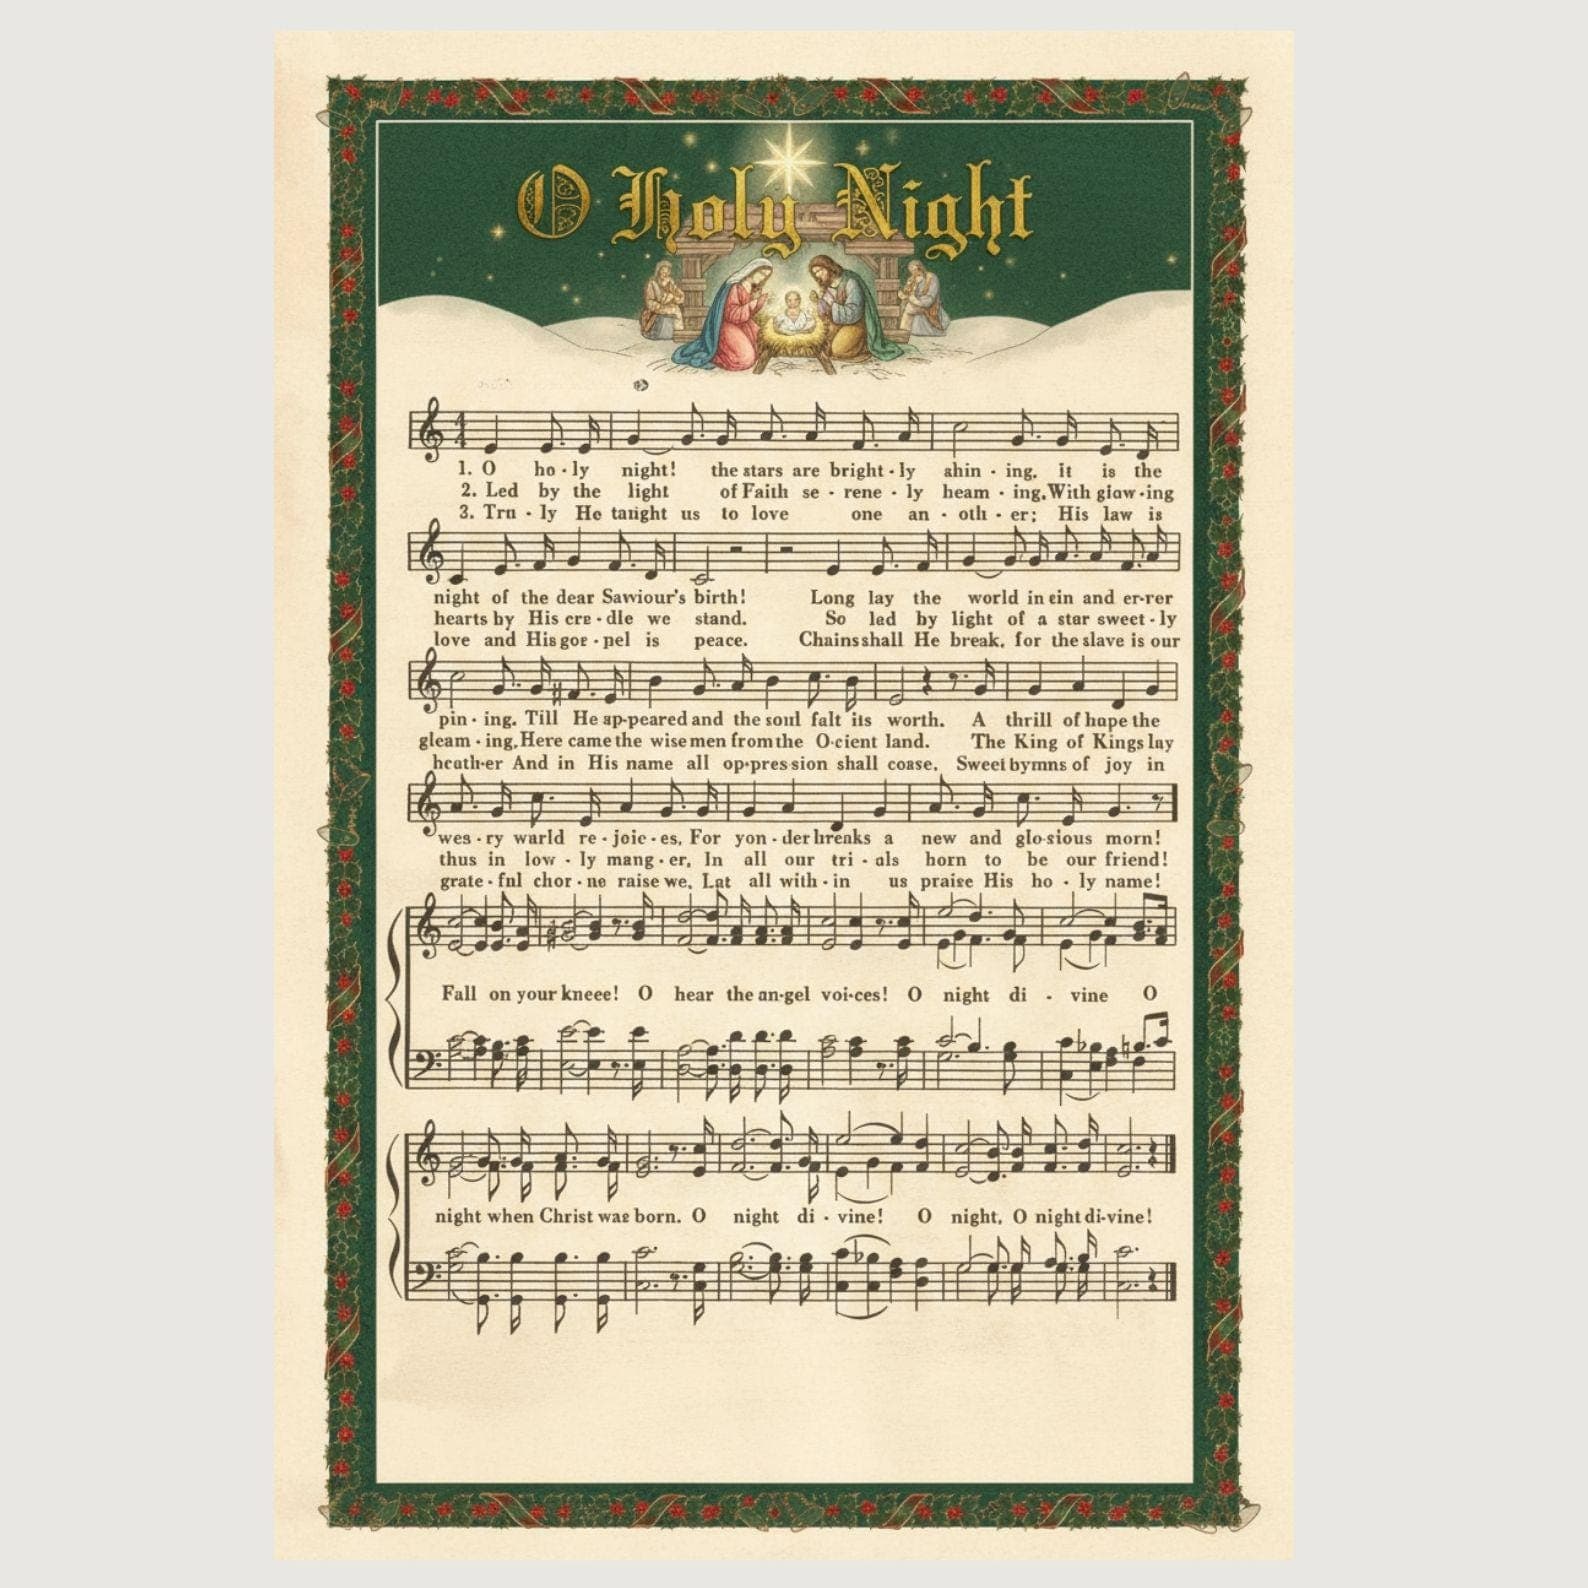 O Holy Night
1. O ho - ly night! the stars are bright - ly ahin - ing. it is the
2. Led by the light of Faith se - rene - ly heam - ing. With glaw - ing
3. Trn - ly He tanght us to love one an - oth - er; His law is
night of the dear Sawiour's birth! Long lay the world in ein and er-rer
hearts by His cre - dle we stand. So led by light of a star sweet - ly
love and His goe - pel is peace. Chains shall He break. for the slave is our
pin - ing. Till He ap-peared and the soul falt its worth. A thrill of hape the
gleam - ing, Here came the wise men from the O-cient land. The King of Kings lay
heath-er And in His name all op-pres-sion shall coase. Sweet bymns of joy in
wes - ry warld re - joic - es, For yon - der hreaks a new and glo-sious morn!
thus in low - ly mang - er, In all our tri - als horn to be our friend!
grate - fnl chor - ne raise we, Lat all with - in us praise His ho - ly name!
Fall on your kneee! O hear the an-gel voi-ces! O night di - vine O
night when Christ was born. O night di - vine! O night, O night di-vine!